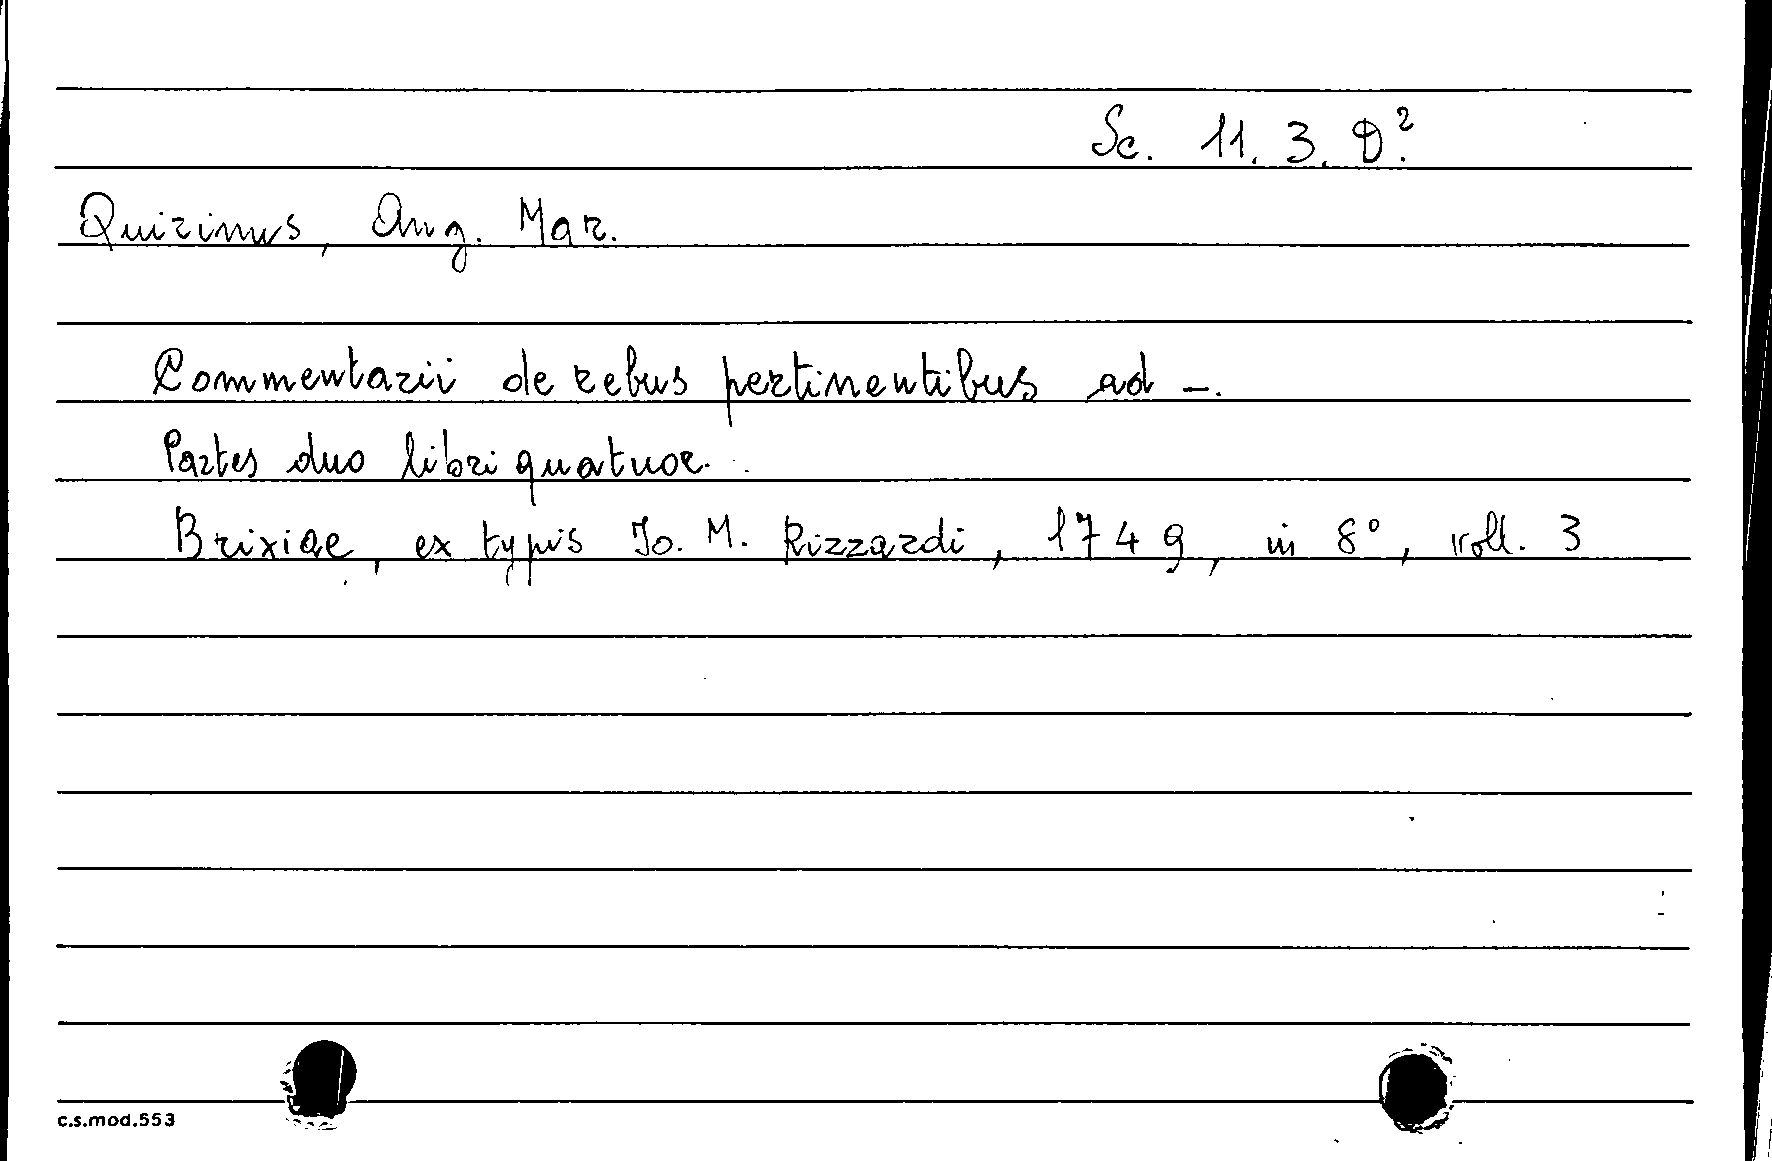 Sc. 11. 3. D².
Quirinus, Ang. Mar.
Commentarii de rebus pertinentibus ad -.
Partes duo libri quatuor.
Brixiae, ex typis Jo. M. Rizzardi, 1749, in 8°, voll. 3
c.s.mod.553